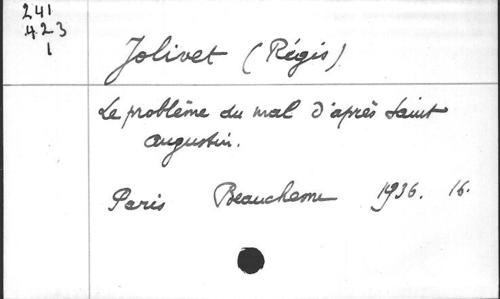 241
423
1
Jolivet (Régis)
Le problème du mal d'après Saint
Augustin.
Paris Beauchesne 1936. 16.